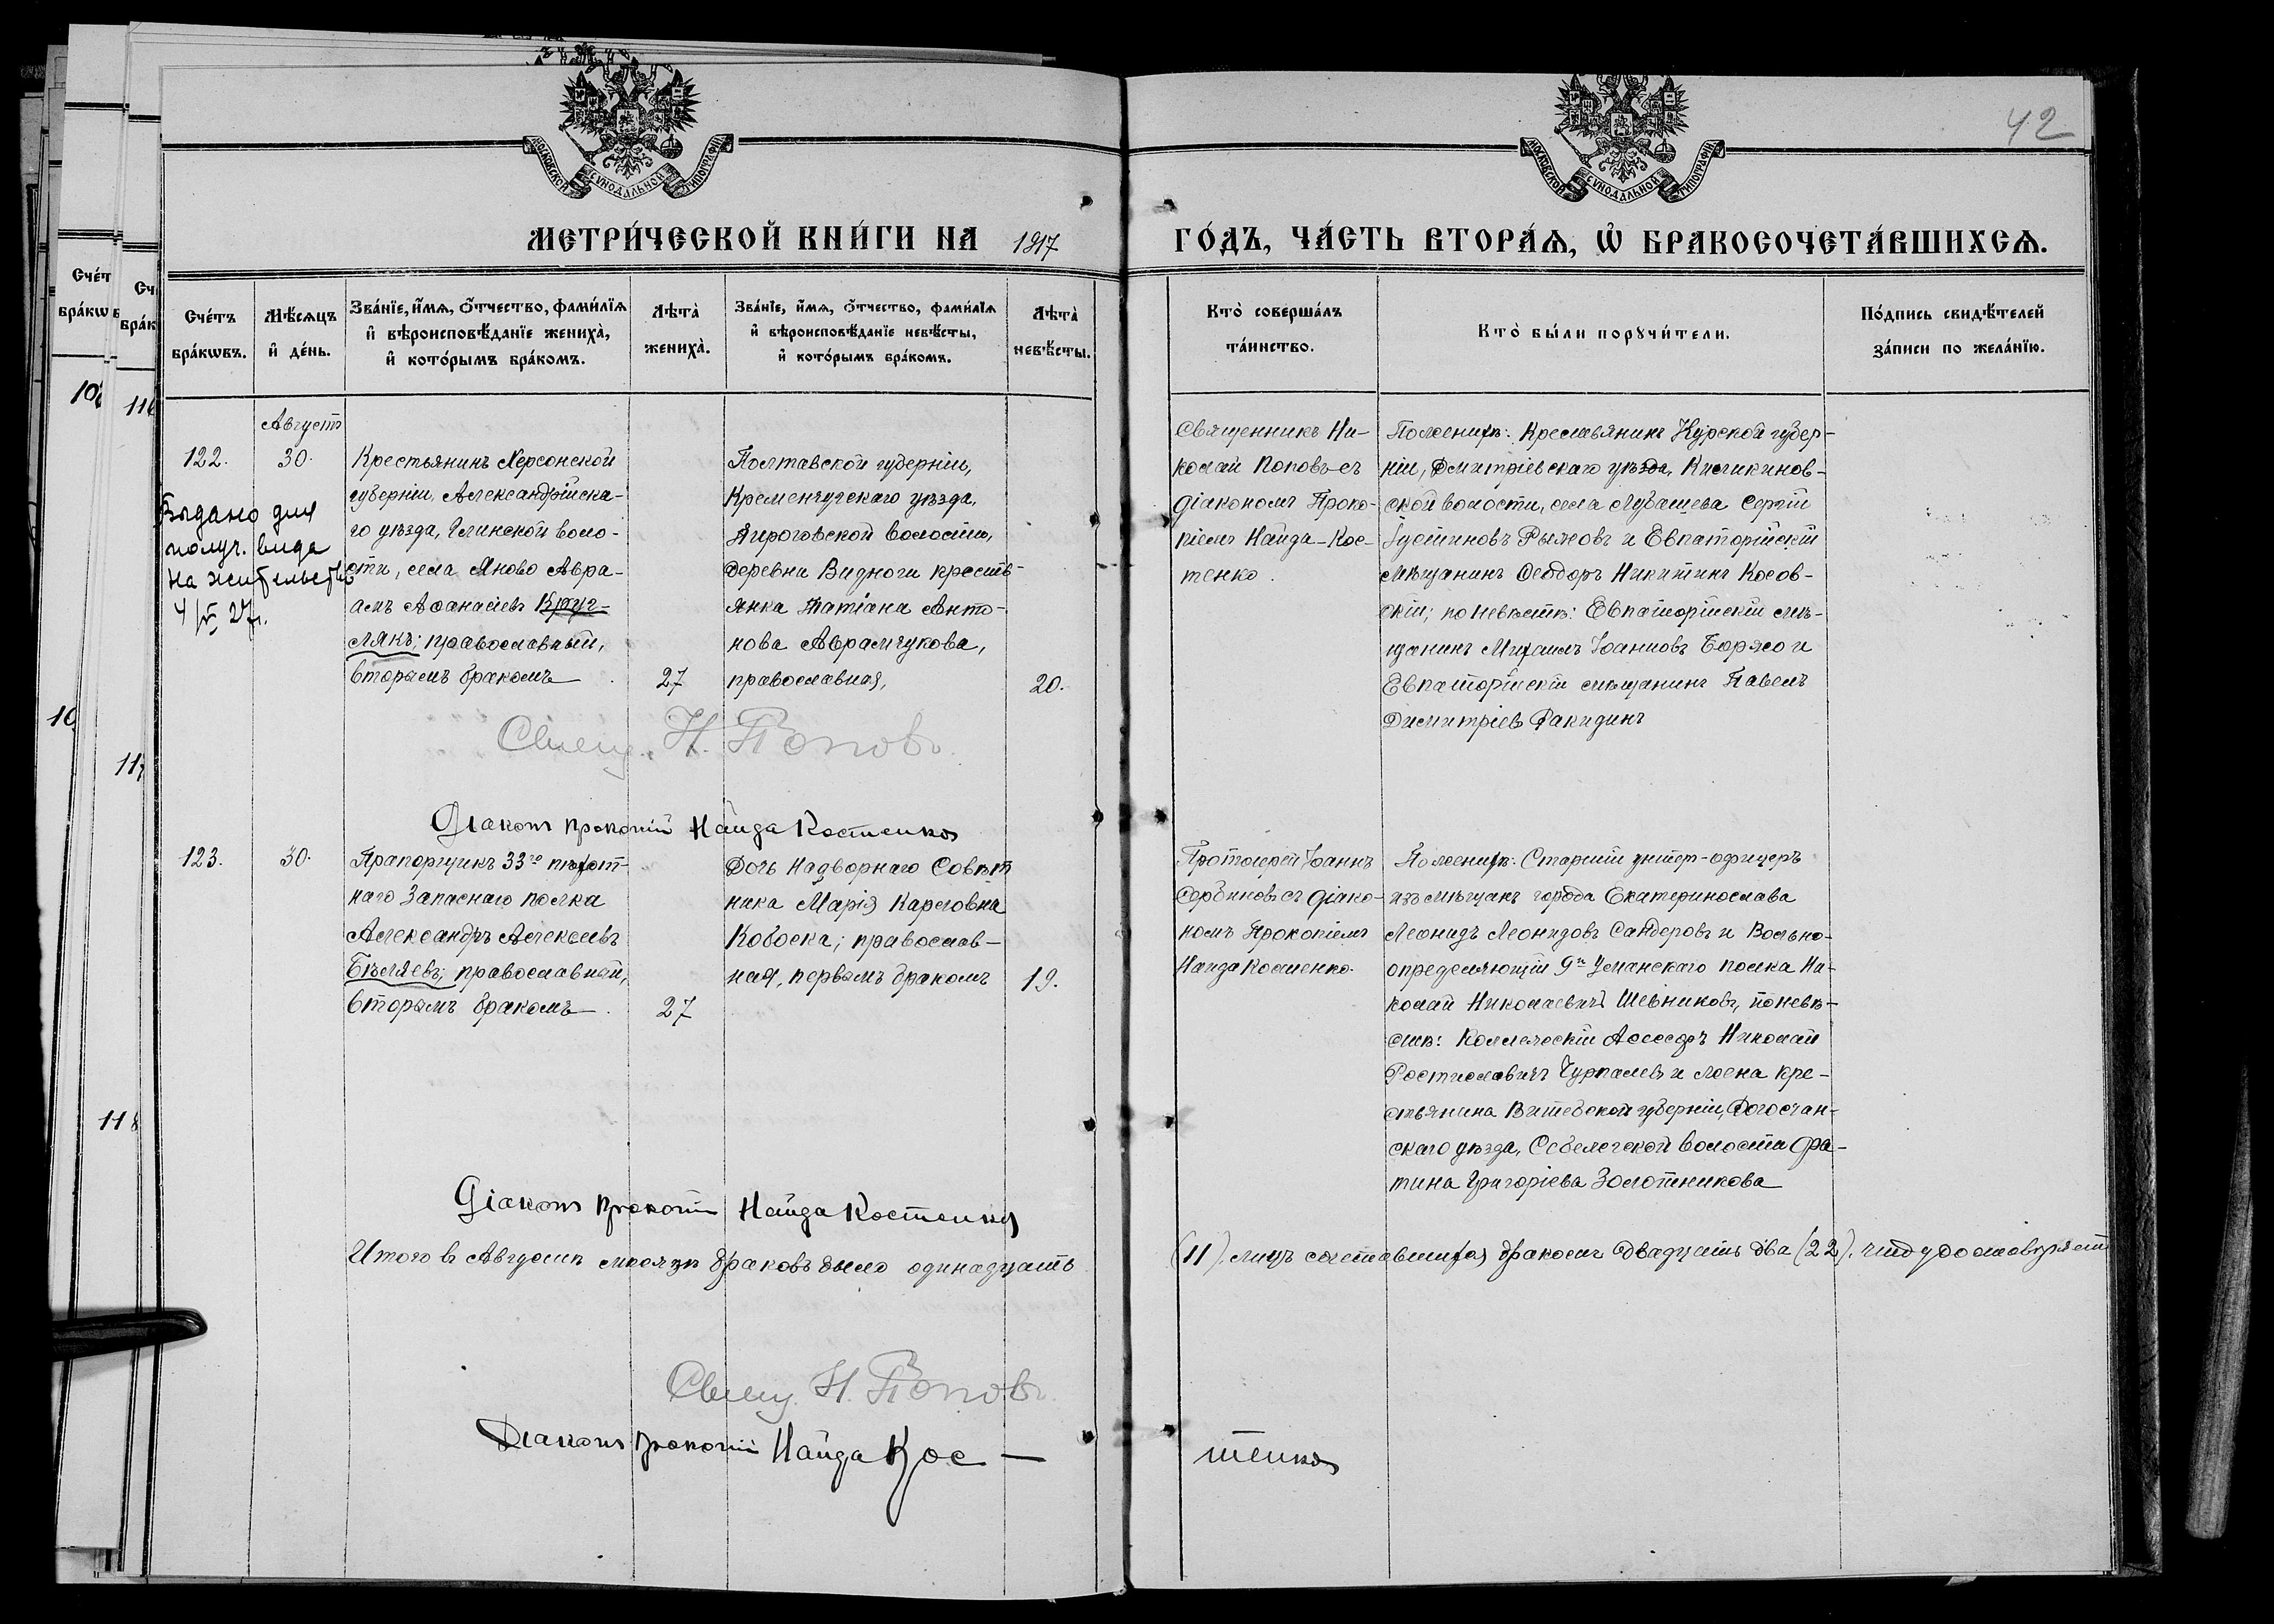 42
МОСКОВСКОЙ СУНОДАЛЬНОЙ ТИПОГРАФІИ
МОСКОВСКОЙ СУНОДАЛЬНОЙ ТИПОГРАФІИ
МЕТРИ́ЧЕСКОЙ КНИ́ГИ НА 1917
ГО́ДЪ, ЧА́СТЬ ВТОРА́Ѧ, Ѡ҆ БРАКОСОЧЕТА́ВШИХСѦ.
Сче́тъ
бра́кѡвъ.
Мѣ́сѧцъ
и҆ де́нь.
Зва́нїе, и҆́мѧ, ѻ҆́тчество, фами́лїѧ
и҆ вѣроисповѣ́данїе жениха̀,
и҆ кото́рымъ бра́комъ.
Лѣта̀
жениха̀.
Зва́нїе, и҆́мѧ, ѻ҆́тчество, фами́лїѧ
и҆ вѣроисповѣ́данїе невѣ́сты,
и҆ кото́рымъ бра́комъ.
Лѣта̀
невѣ́сты.
Кто̀ соверша́лъ
та́инство.
Кто̀ бы́ли порꙋчи́тели.
По́дпись свидѣ́телей
за́писи по жела́нїю.
Августъ
122.
30.
Выдано для
получ. вида
на жительство
4/V 27г.
Крестьянинъ Херсонской
губерніи, Александрійска-
го уѣзда, Глинской воло-
сти, села Яново Авра-
амъ Аѳанасіевъ Круг-
лякъ; православный,
вторымъ бракомъ.
27
Полтавской губерніи,
Кременчугскаго уѣзда,
Пироговской волости,
деревни Видноги крестъ-
янка Татіана Анто-
нова Аврамчукова,
православная,
20.
Священникъ Ни-
колай Поповъ съ
діакономъ Проко-
піемъ Найда-Кос-
тенко.
По женихѣ: Крестьянинъ Курской губер-
ніи, Дмитріевскаго уѣзда,
ской волости, села Сергій
Іустиновъ Рыжовъ и Евпаторійскій
мѣщанинъ Ѳеодоръ Никитинъ Косов-
скій; по невѣстѣ: Евпаторійскій мѣ-
щанинъ Михаилъ Іоанновъ и
Евпаторійскій мѣщанинъ Павелъ
Димитріевъ Ракидинъ
Свящ. Н. Поповъ.
Діаконъ Прокопій Найда Костенко
123.
30.
Прапорщикъ 33го пѣхот-
наго Запаснаго полка
Александръ Алексѣевъ
Бѣляевъ; православный,
вторымъ бракомъ.
27
Дочь Надворнаго Совѣт
ника Марія Карловна
православ-
ная, первымъ бракомъ
19.
Протоіерей Іоаннъ
Сербиновъ съ діако-
номъ Прокопіемъ
Найда Костенко.
По женихѣ: Старшій унтер-офицеръ
изъ мѣщанъ города Екатеринослава
Леонидъ Леонидовъ Сандеровъ и Вольно-
опредѣляющій 9го Уманскаго полка Ни-
колай Николаевичъ Шевниковъ, по невѣ-
стѣ: Коллежскій Асесоръ Николай
Ростиславичъ и жена кре-
стьянина Витебской губерніи,
скаго уѣзда, волости
тина Григоріева Золотникова
Діаконъ Прокопій Найда Костенко
Итого въ Августѣ мѣсяцѣ браковъ было одинадцать
(11), лицъ сочетавшихся бракомъ двадцать два (22), что удостовѣряетъ
Свящ. Н. Поповъ.
Діаконъ Прокопій Найда Кос-
тенко